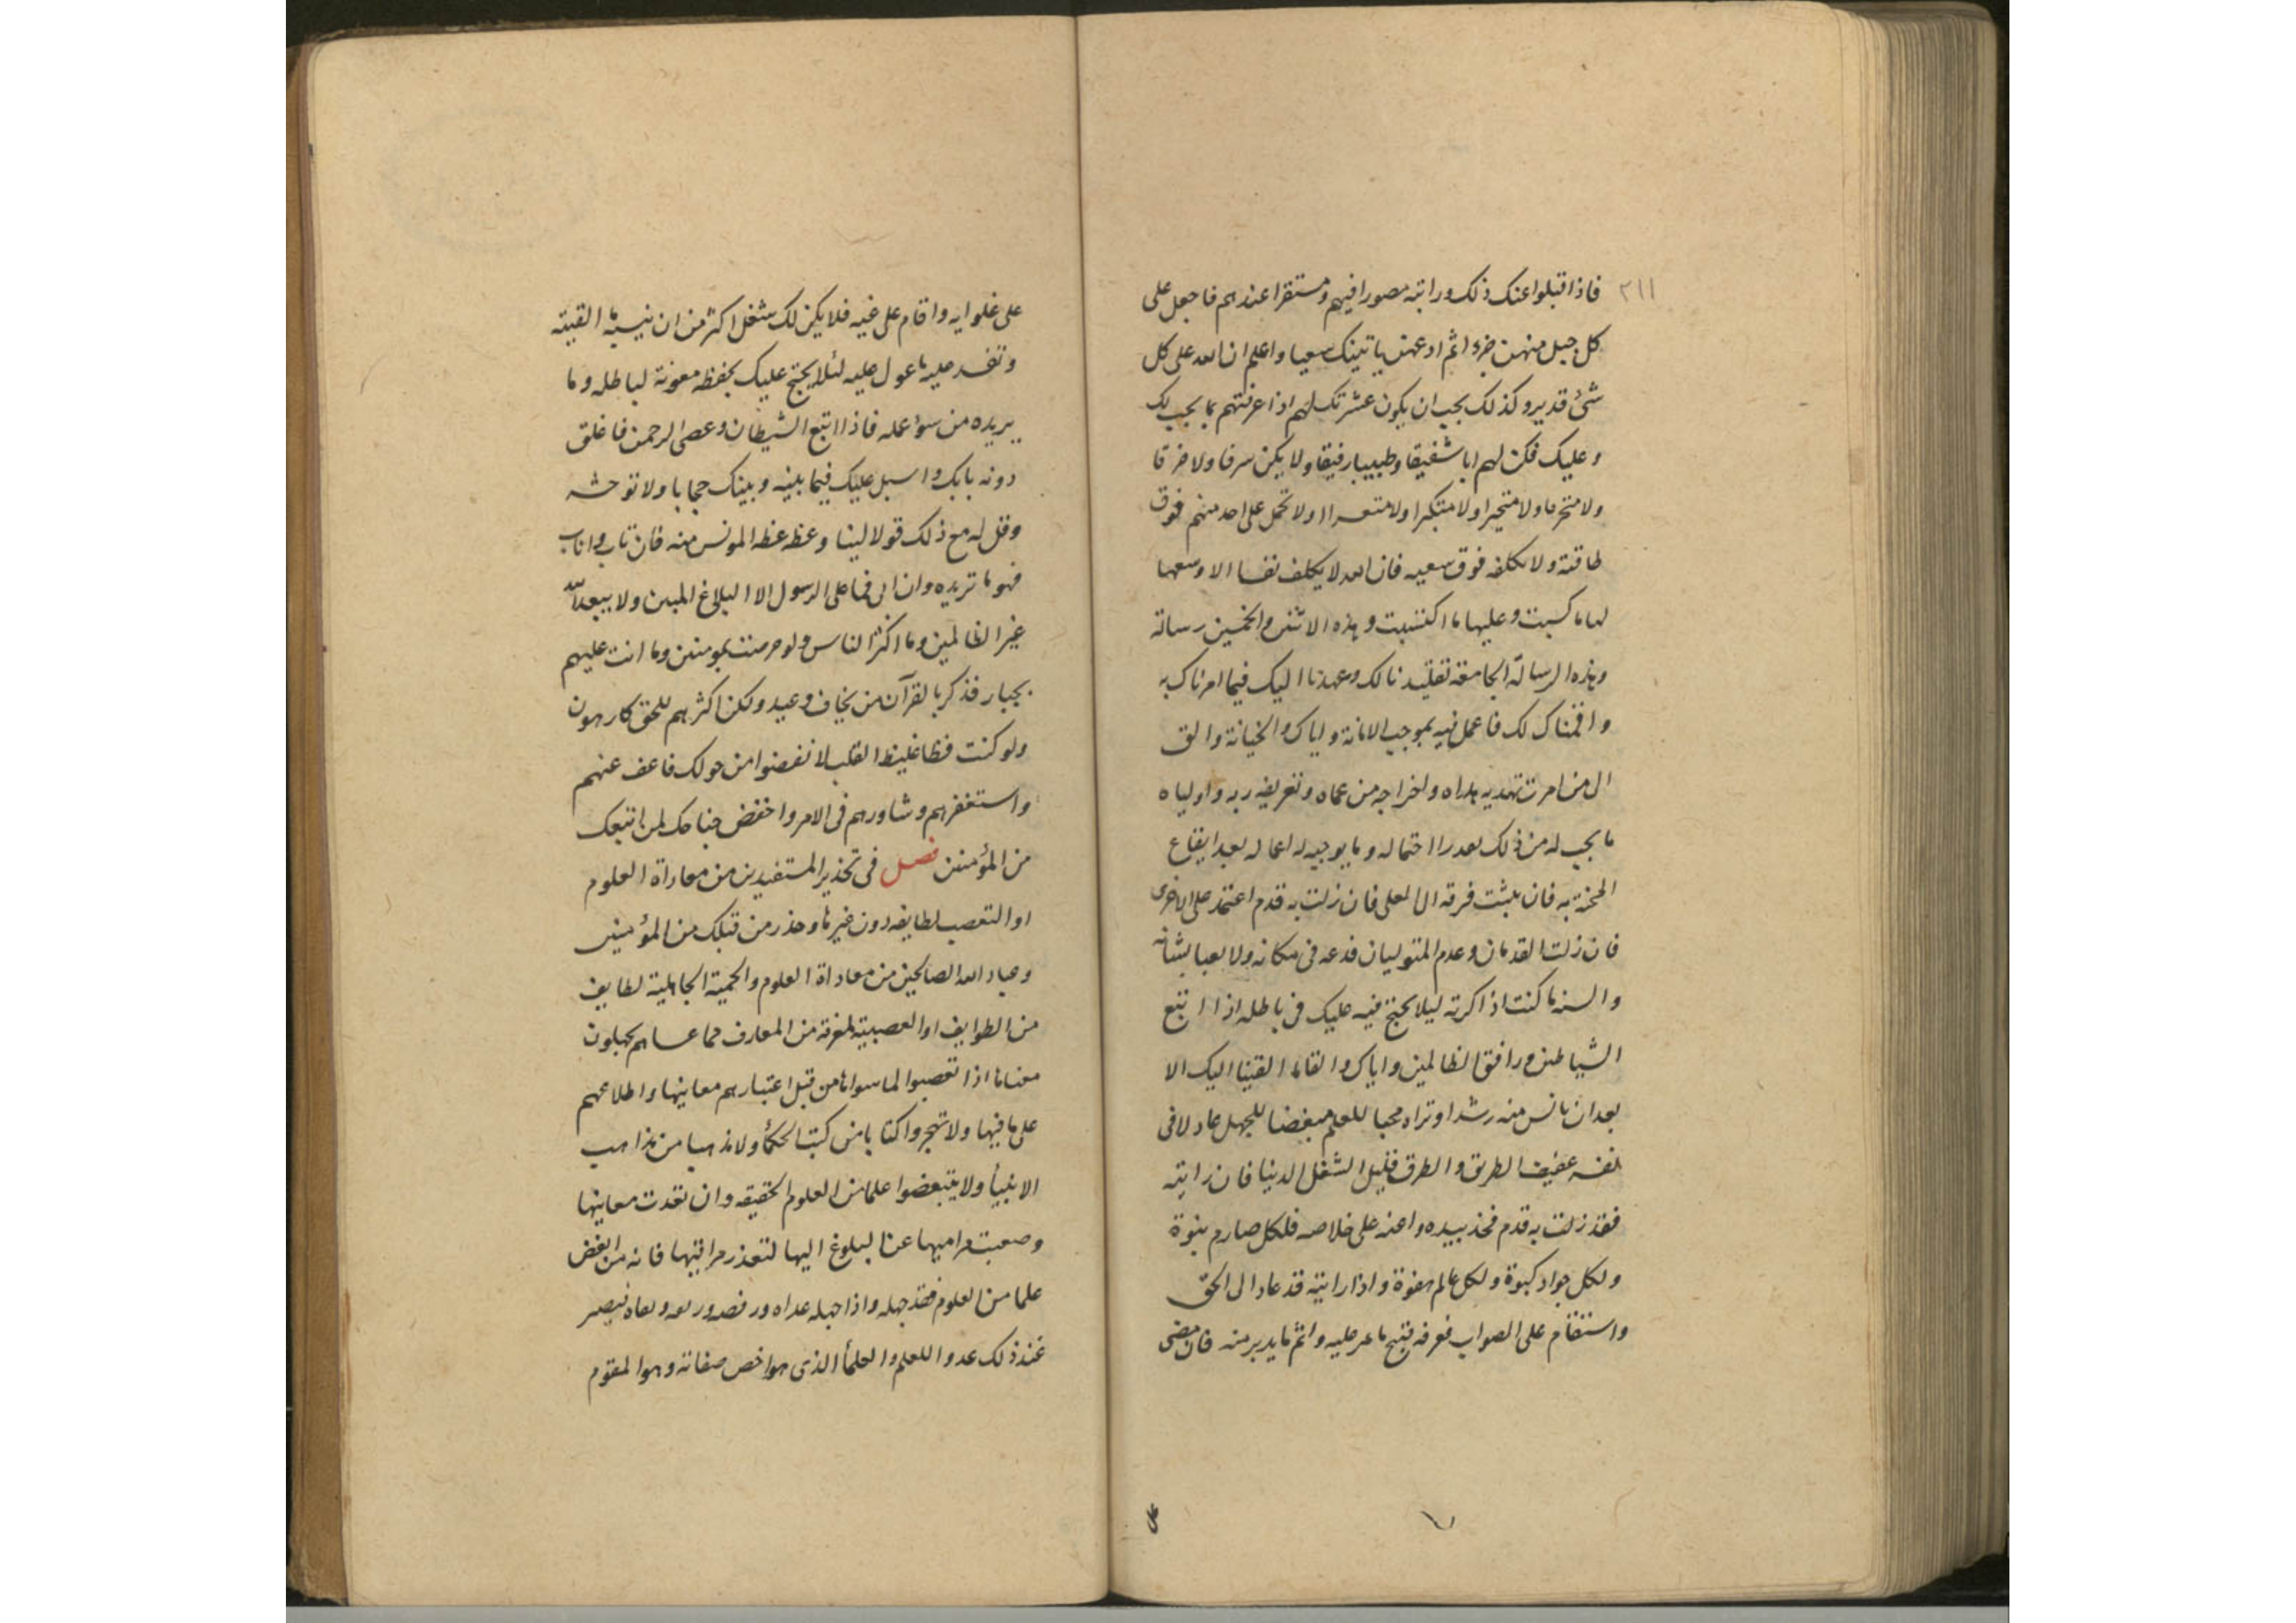 ٢١١
فاذا قبلوا عنك ذلك ورايته مصورا فيهم ومستقرا عندهم فاجعل على
كل جبل منهن جزءا ثم ادعهن ياتينك سعيا واعلم ان الله على كل
شئ قدير وكذلك يجب ان يكون عشرتك لهم اذا عرفتهم بما يجب لك
وعليك فكن لهم ابا شفيقا وطبيبا رفيقا ولا يكن سرفا ولا خرقا
ولا متخرما ولا متجبرا ولا متكبرا ولا متعسرا ولا تحمل على احد منهم فوق
طاقته ولا تكلفه فوق سعيه فان الله لا يكلف نفسا الا وسعها
لها ما كسبت وعليها ما اكتسبت وهذه الاثنين والخمسين رسالة
وهذه الرسالة الجامعة تقليدنا لك وعهدنا اليك فيما امرناك به
واقمناك لك فاعمل فيه بموجب الامانة واياك والخيانة والق
الى من امرت تهديه هداه واخراجه من عماه وتعريفه ربه واولياه
ما يجب له من ذلك بعد احتماله وما يوجبه له اعماله بعد ايقاع
المحنة به فان ثبتت فرقه الى المعلى فان زلت به قدم اعتمد على الاخرى
فان زلت القدمان وعدم المتوليان فدعه فى مكانه ولا تعبا بشانه
والسنه ما كنت اذاكرته ليلا يحتج فيه عليك فى باطله اذا اتبع
الشياطين ورافق الظالمين واياك والقاء ما القينا اليك الا
بعد ان تانس منه رشدا وتراه محبا للعلم مبغضا للجهل عادلا فى
نفسه عفيف الطريق والطرق قليل الشغل الدنيا فان رايته
فقد زلت به قدم فخذ بيده واعنه على خلاصه فلكل صارم نبوة
ولكل جواد كبوة ولكل عالم هفوة واذا رايته قد عاد الى الحق
واستقام على الصواب فعرفه قبح ما مر عليه واثم ما يدبر منه فان مضى
على
على غلوايه واقام على غيه فلا يكن لك شغل اكثر من ان ينسيه ما القيته
وتفسد عليه ما عول عليه لئلا يحتج عليك بحفظه معونة لباطله وما
يريده من سوء عمله فاذا اتبع الشيطان وعصى الرحمن فاغلق
دونه بابك واسبل عليك فيما بينه وبينك حجابا ولا توحشه
وقل له مع ذلك قولا لينا وعظه عظة المونس منه فان تاب واناب
فهو ما تريده وان ابى فما على الرسول الا البلاغ المبين ولا يبعد الله
غير الظالمين وما اكثر الناس ولو حرصت بمومنين وما انت عليهم
بجبار فذكر بالقرآن من يخاف وعيد ولكن اكثرهم للحق كارهون
ولو كنت فظا غليظ القلب لانفضوا من حولك فاعف عنهم
واستغفر لهم وشاورهم فى الامر واخفض جناحك لمن اتبعك
من المؤمنين فصل فى تحذير المستفيدين من معاداة العلوم
او التعصب لطايفه دون غيرها وحذر من قبلك من المؤمنين
وعباد الله الصالحين من معاداة العلوم والحمية الجاهلية لطايف
من الطوايف او العصبية لمعرفة من المعارف مما عساهم يجهلون
معناها اذا تعصبوا لما سواها من قبل اعتبارهم معاينها واطلاعهم
على ما فيها ولا تهجروا كتابا من كتب الحكماء ولا مذهبا من مذاهب
الانبياء ولا يتبعضوا علما من العلوم الحقيقه وان تعدت معاينها
وصعبت مراميها عن البلوغ اليها لتعذر مراقيها فانه من ابغض
علما من العلوم فقد جهله واذا جهله عداه ورفضه فيصير
عند ذلك عدوا للعلم والعلماء الذى هو اخص صفاته وهو المقوم